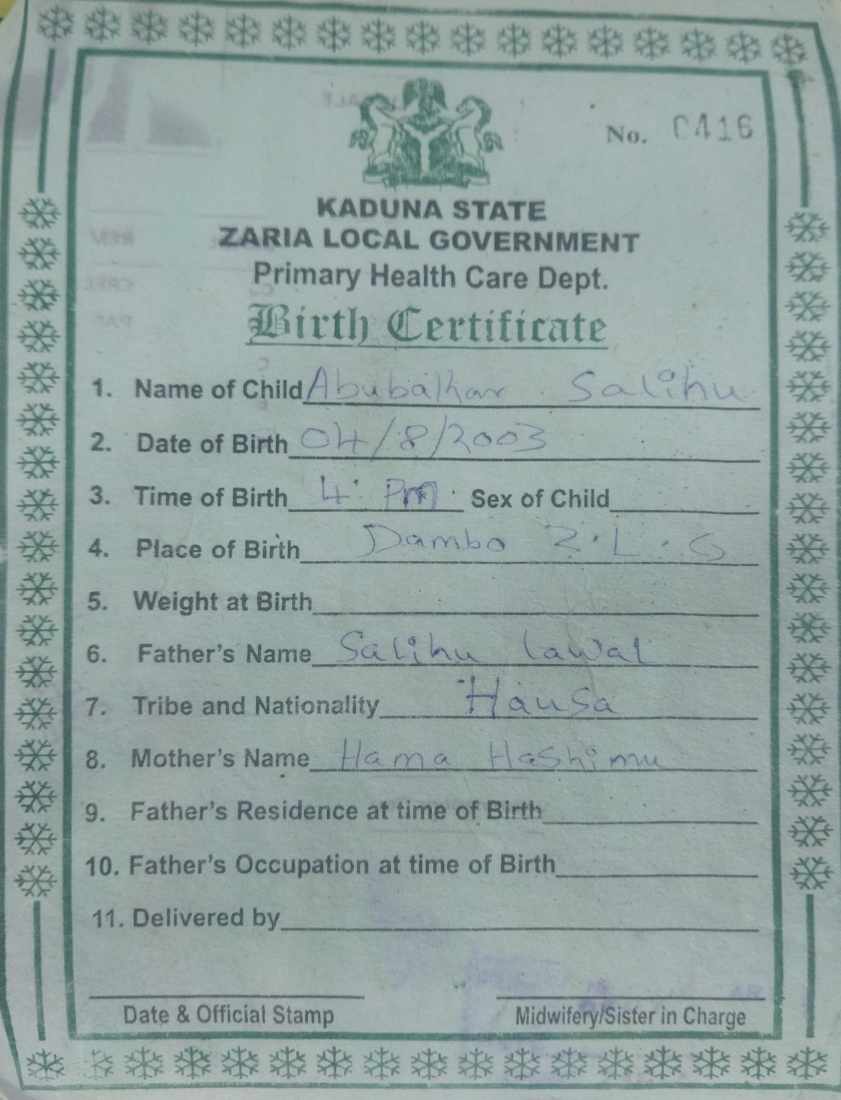 No. 0416
KADUNA STATE
ZARIA LOCAL GOVERNMENT
Primary Health Care Dept.
Birth Certificate
1. Name of Child Abubakhar Salihu
2. Date of Birth 04/8/2003
3. Time of Birth 4 Pm Sex of Child
4. Place of Birth Dambo Z.L.G
5. Weight at Birth
6. Father's Name Salihu Lawal
7. Tribe and Nationality Hausa
8. Mother's Name Hama Hashimu
9. Father's Residence at time of Birth
10. Father's Occupation at time of Birth
11. Delivered by
Date & Official Stamp Midwifery/Sister in Charge